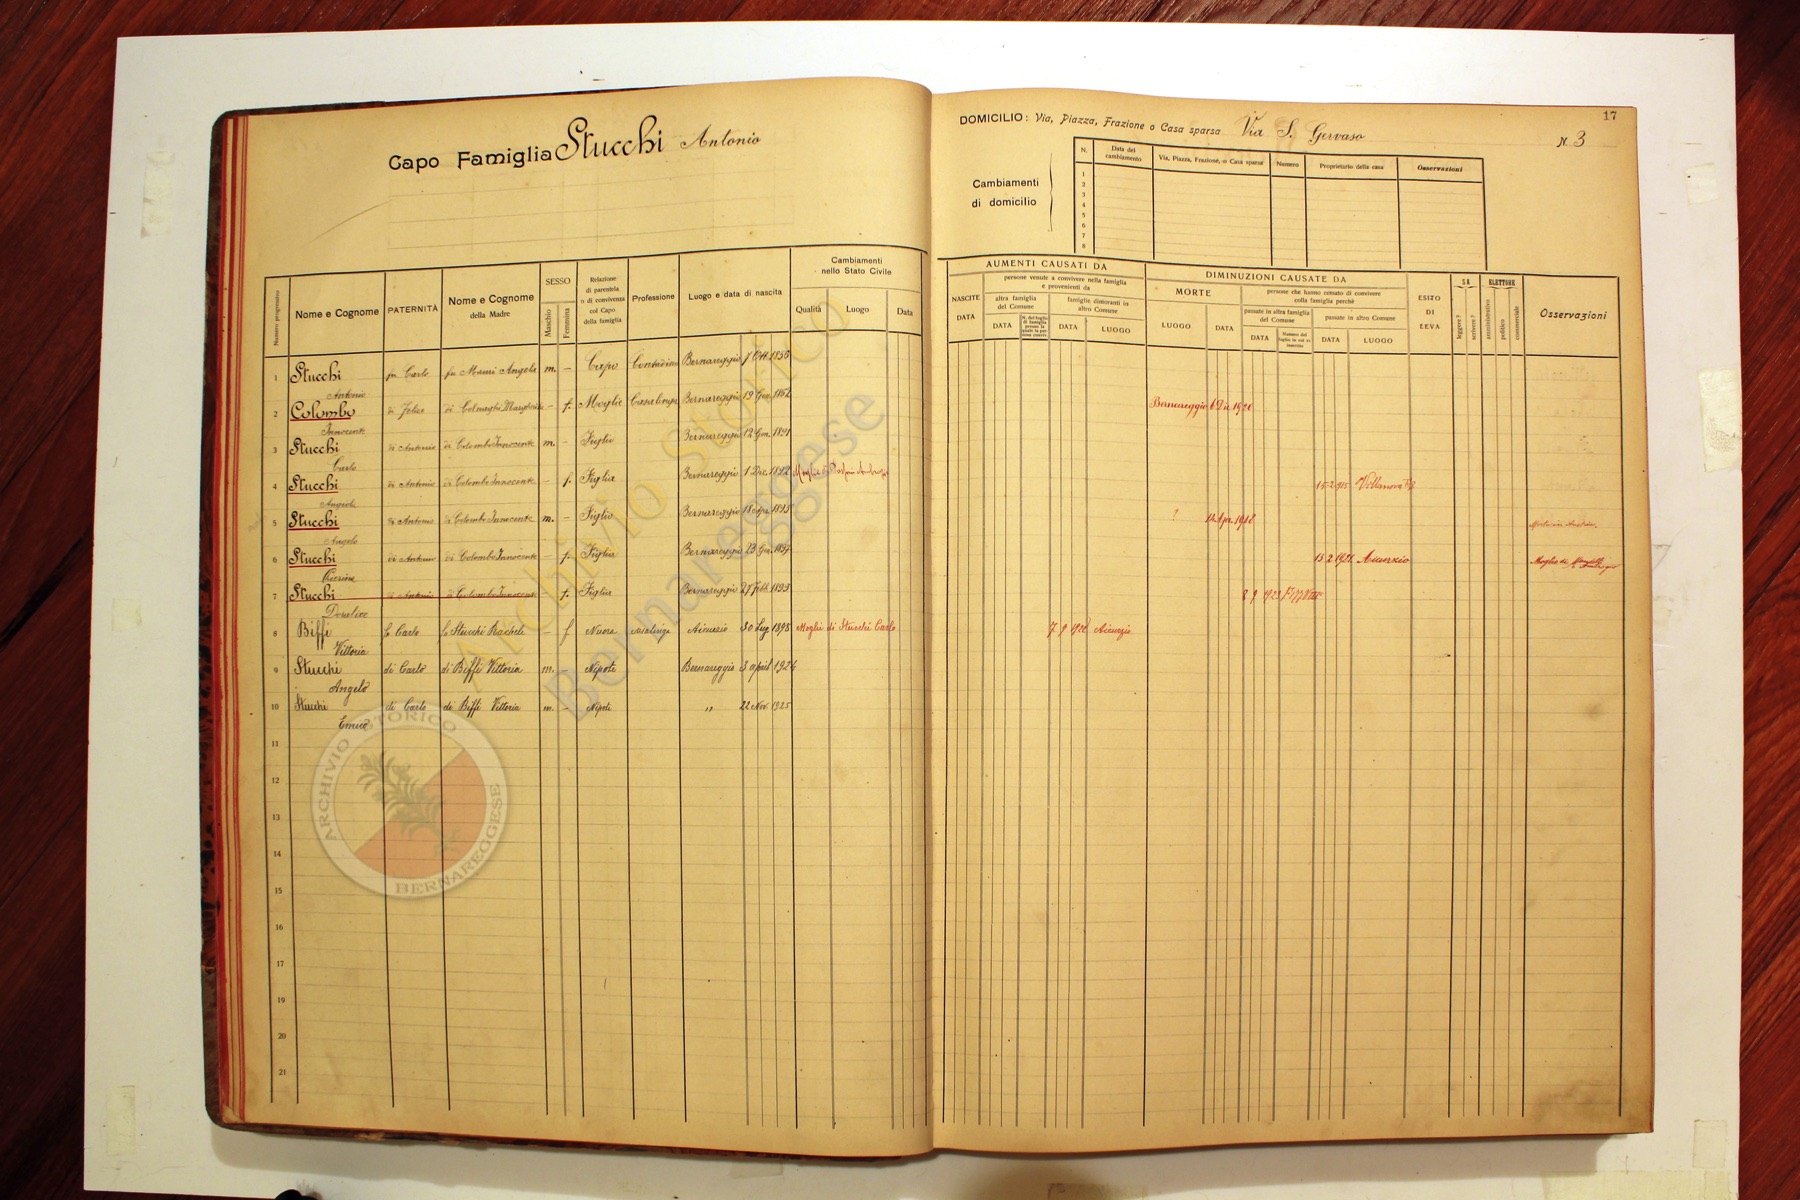 Capo Famiglia Stucchi Antonio
Numero progressivo
Nome e Cognome
PATERNITÀ
Nome e Cognome della Madre
SESSO
Maschio
Femmina
Relazione di parentela o di convivenza col Capo della famiglia
Professione
Luogo e data di nascita
Cambiamenti nello Stato Civile
Qualità
Luogo
Data
1 Stucchi Antonio fu Carlo fu Mauri Angela m. – Capo Contadino Bernareggio 7 Ott. 1856
2 Colombo Innocente di Felice di Colnaghi Margherita – f. Moglie Casalinga Bernareggio 19 Gen. 1862
3 Stucchi Carlo di Antonio di Colombo Innocente m. – Figlio Bernareggio 12 Gen. 1891
4 Stucchi Angiola di Antonio di Colombo Innocente – f. Figlia Bernareggio 1 Dic. 1892 Moglie di
5 Stucchi Angelo di Antonio di Colombo Innocente m. – Figlio Bernareggio 18 1895
6 Stucchi Pierina di Antonio di Colombo Innocente – f. Figlia Bernareggio 23 Giu. 1897
7 Stucchi di Antonio di Colombo Innocente – f. Figlia Bernareggio 27 Febb. 1899
8 Biffi Vittoria fu Carlo fu Stucchi Rachele – f Nuora casalinga Aicurzio 30 Lug. 1898 Moglie di Stucchi Carlo
9 Stucchi Angelo di Carlo di Biffi Vittoria m. – Nipote Bernareggio 3 april 1924
10 Stucchi Enrico di Carlo di Biffi Vittoria m. – Nipote " 22 Nov. 1925
11
12
13
14
15
16
17
18
19
20
21
17
DOMICILIO: Via, Piazza, Frazione o Casa sparsa Via S. Gervaso N. 3
Cambiamenti di domicilio
N.
Data del cambiamento
Via, Piazza, Frazione, o Casa sparsa
Numero
Proprietario della casa
Osservazioni
1
2
3
4
5
6
7
8
AUMENTI CAUSATI DA
NASCITE
DATA
persone venute a convivere nella famiglia e provenienti da
altra famiglia del Comune
DATA
N. del foglio di famiglia presso la quale la persona
famiglie dimoranti in altro Comune
DATA
LUOGO
DIMINUZIONI CAUSATE DA
MORTE
LUOGO
DATA
persone che hanno cessato di convivere colla famiglia perchè
passate in altra famiglia del Comune
DATA
Numero del foglio in cui si inscritte
passate in altro Comune
DATA
LUOGO
ESITO DI LEVA
SA
leggere?
scrivere?
ELETTORE
amministrativo
politico
commerciale
Osservazioni
Bernareggio 6 Dic. 1926
15-2-915 Villanova
? 14 Apr. 1918 Morto in Austria
15 2 1921 Aicurzio Moglie di
8 9 1923
7. 9 1922 Aicurzio
Archivio Storico
Bernareggese
ARCHIVIO STORICO
BERNAREGGESE